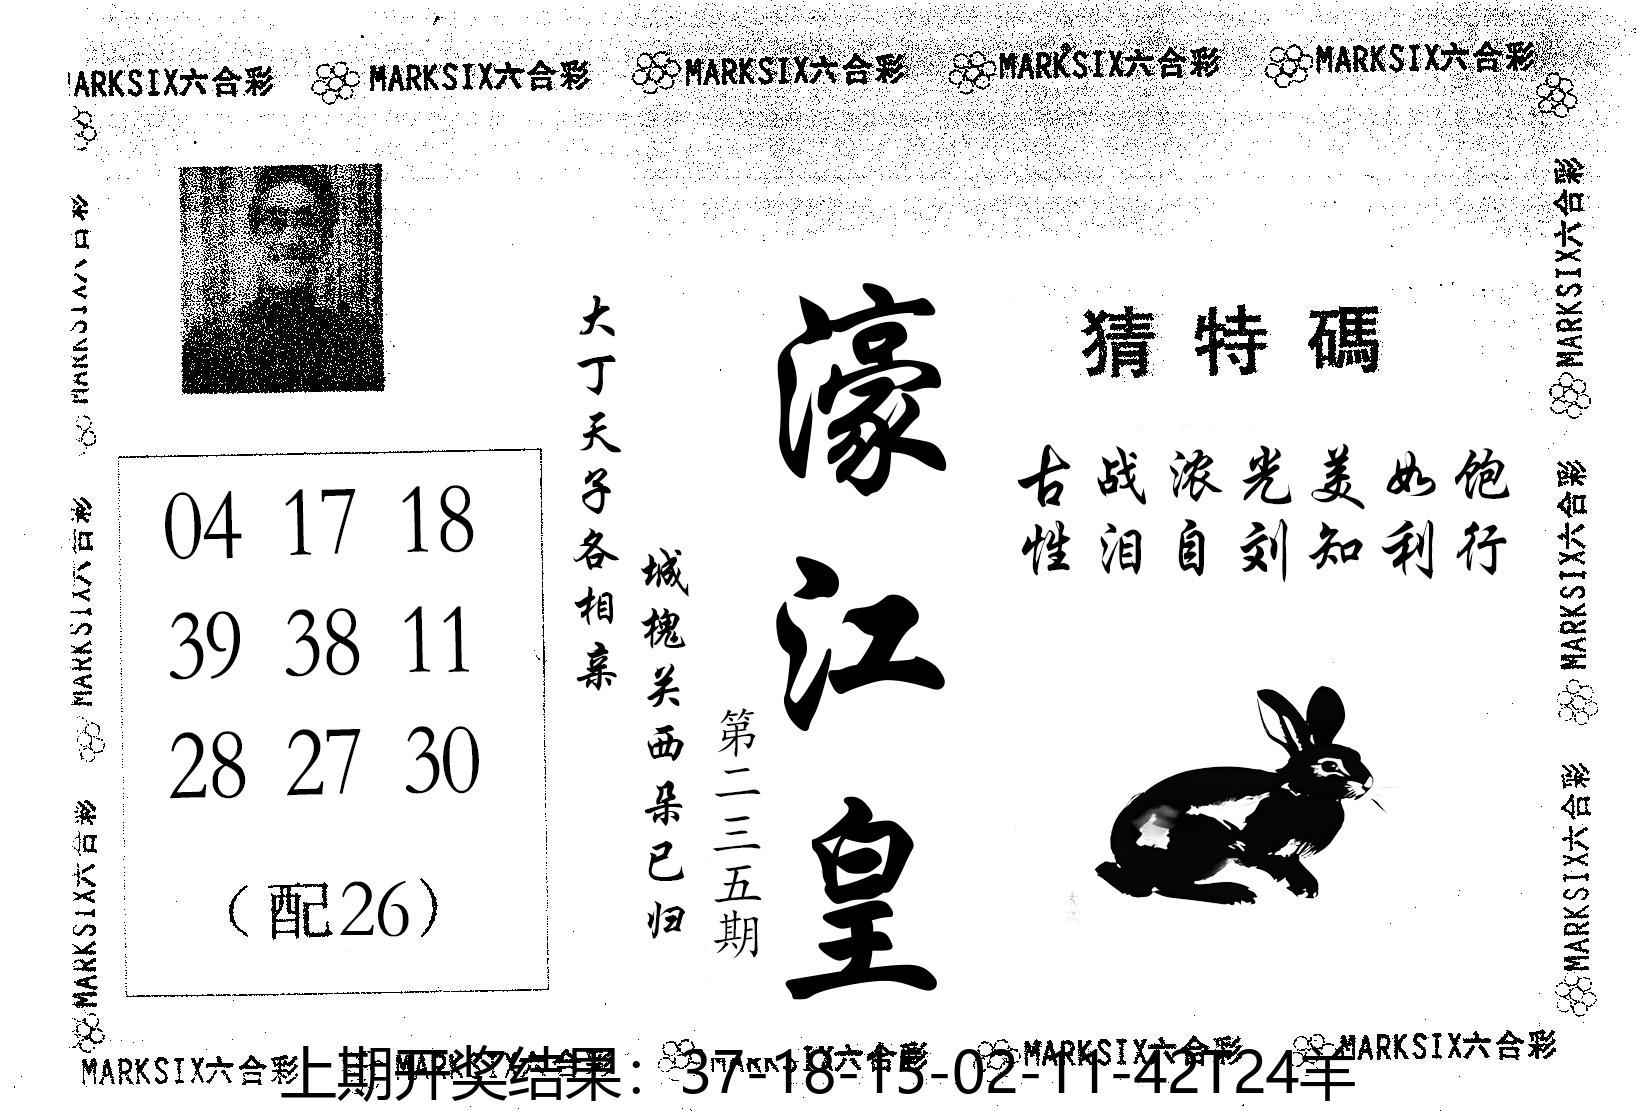 MARKSIX六合彩 MARKSIX六合彩 MARKSIX六合彩 MARKSIX六合彩 MARKSIX六合彩
MARKSIX六合彩
MARKSIX六合彩
MARKSIX六合彩
04 17 18
39 38 11
28 27 30
（配26）
大丁天子各相亲
城槐关西朵已归
第二三五期
濠江皇
猜特碼
古战浓光美如饱
性泪自刘知利行
MARKSIX六合彩
MARKSIX六合彩
MARKSIX六合彩
MARKSIX六合彩 MARKSIX六合彩 MARKSIX六合彩 MARKSIX六合彩 MARKSIX六合彩
上期开奖结果：37-18-15-02-11-42T24羊